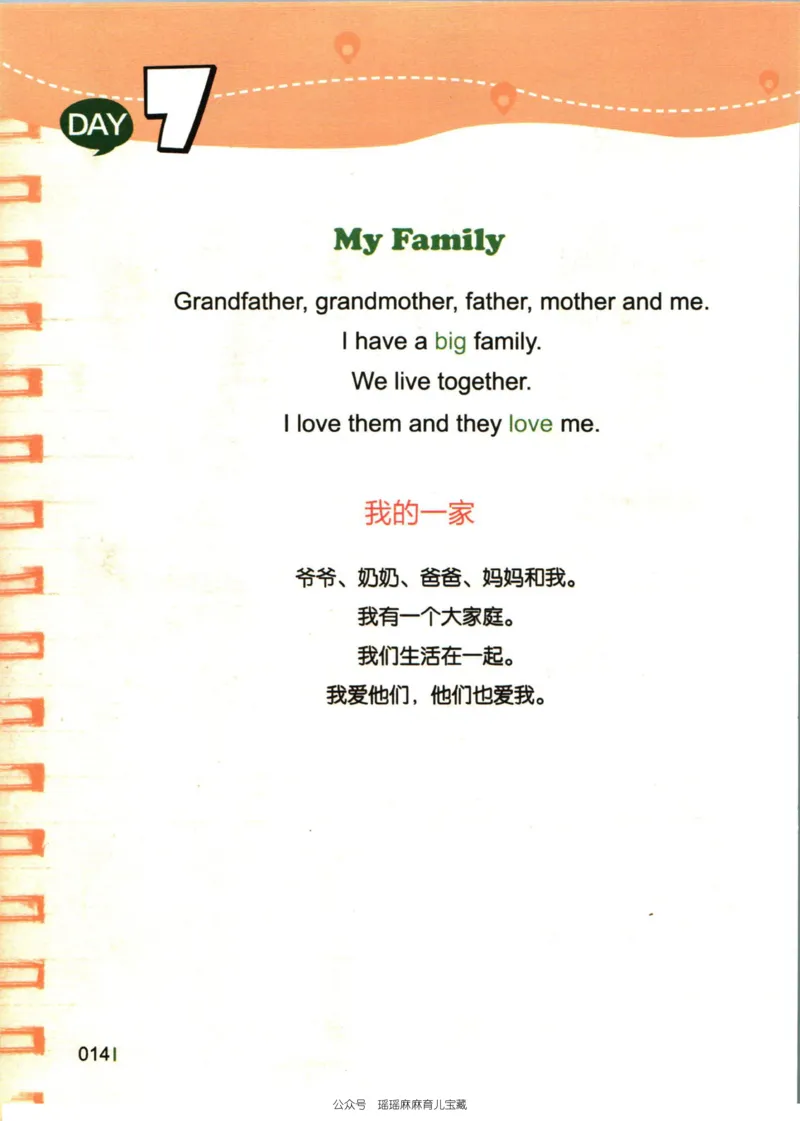 DAY 7
My Family
Grandfather, grandmother, father, mother and me.
I have a big family.
We live together.
I love them and they love me.
我的一家
爷爷、奶奶、爸爸、妈妈和我。
我有一个大家庭。
我们生活在一起。
我爱他们，他们也爱我。
014
公众号 瑶瑶麻麻育儿宝藏